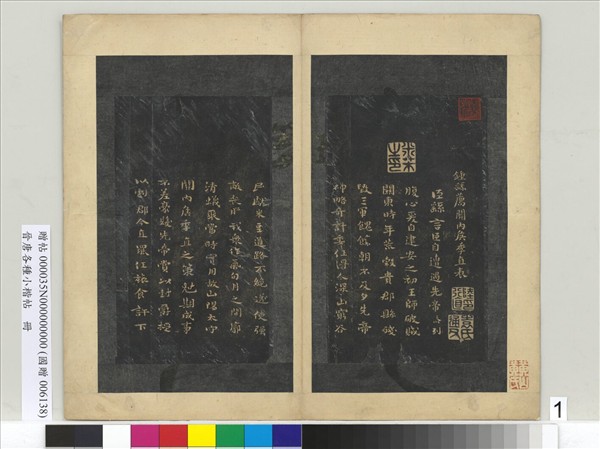 鍾繇薦關內侯季直表
臣繇言臣自遭遇先帝忝列
腹心爰自建安之初王師破賊
關東時年荒穀貴郡縣殘
毀三軍餽饟朝不及夕先帝
神略奇計委任得人深山窮谷
民獻米豆道路不絕遂使強
敵喪膽我衆作氣旬月之間廓
清蟻聚當時實用故山陽太守
關內侯季直之策剋期成事
不差豪髮先帝賞以封爵授
以劇郡今直罷任旅食許下
贈帖 000035N000000000 (國贈 006138)
晉唐各種小楷帖 冊
1